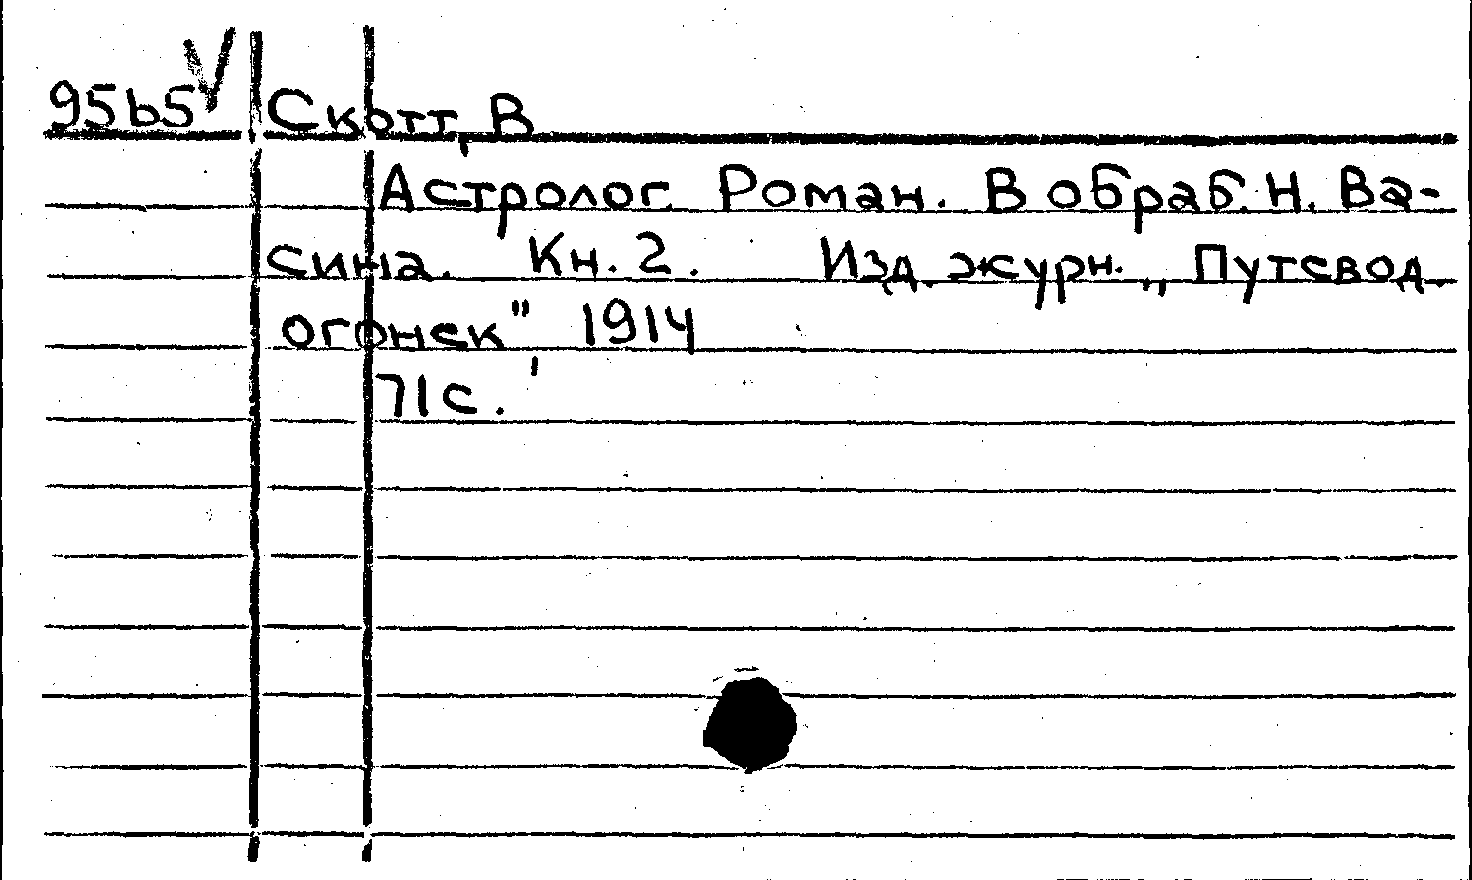 95b5 Скотт, В
Астролог. Роман. В обраб. Н. Ва-
сина. Кн. 2. Изд. журн. „Путевод.
огонек", 1914
71с.